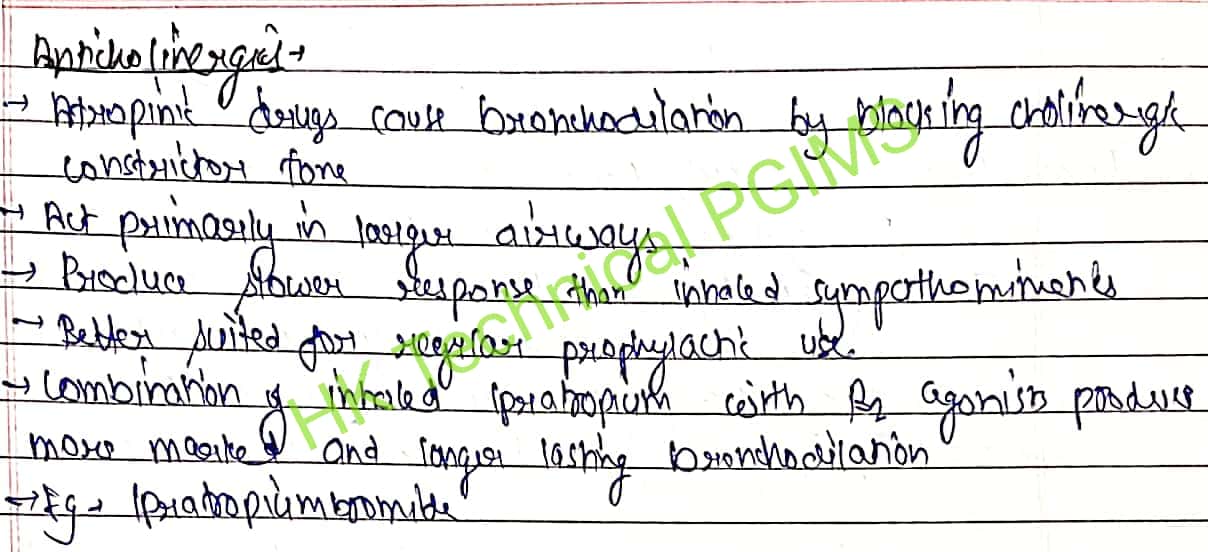 Anticholinergics →
→ Atropinic drugs cause bronchodilation by blocking cholinergic
constrictor tone
→ Act primarily in larger airways
→ Produce slower response than inhaled sympathomimetics
→ Better suited for regular prophylactic use.
→ Combination of inhaled Ipratropium with β2 agonists produce
more marked and longer lasting bronchodilation
→ Eg → Ipratropium bromide
HK Technical PGIMS